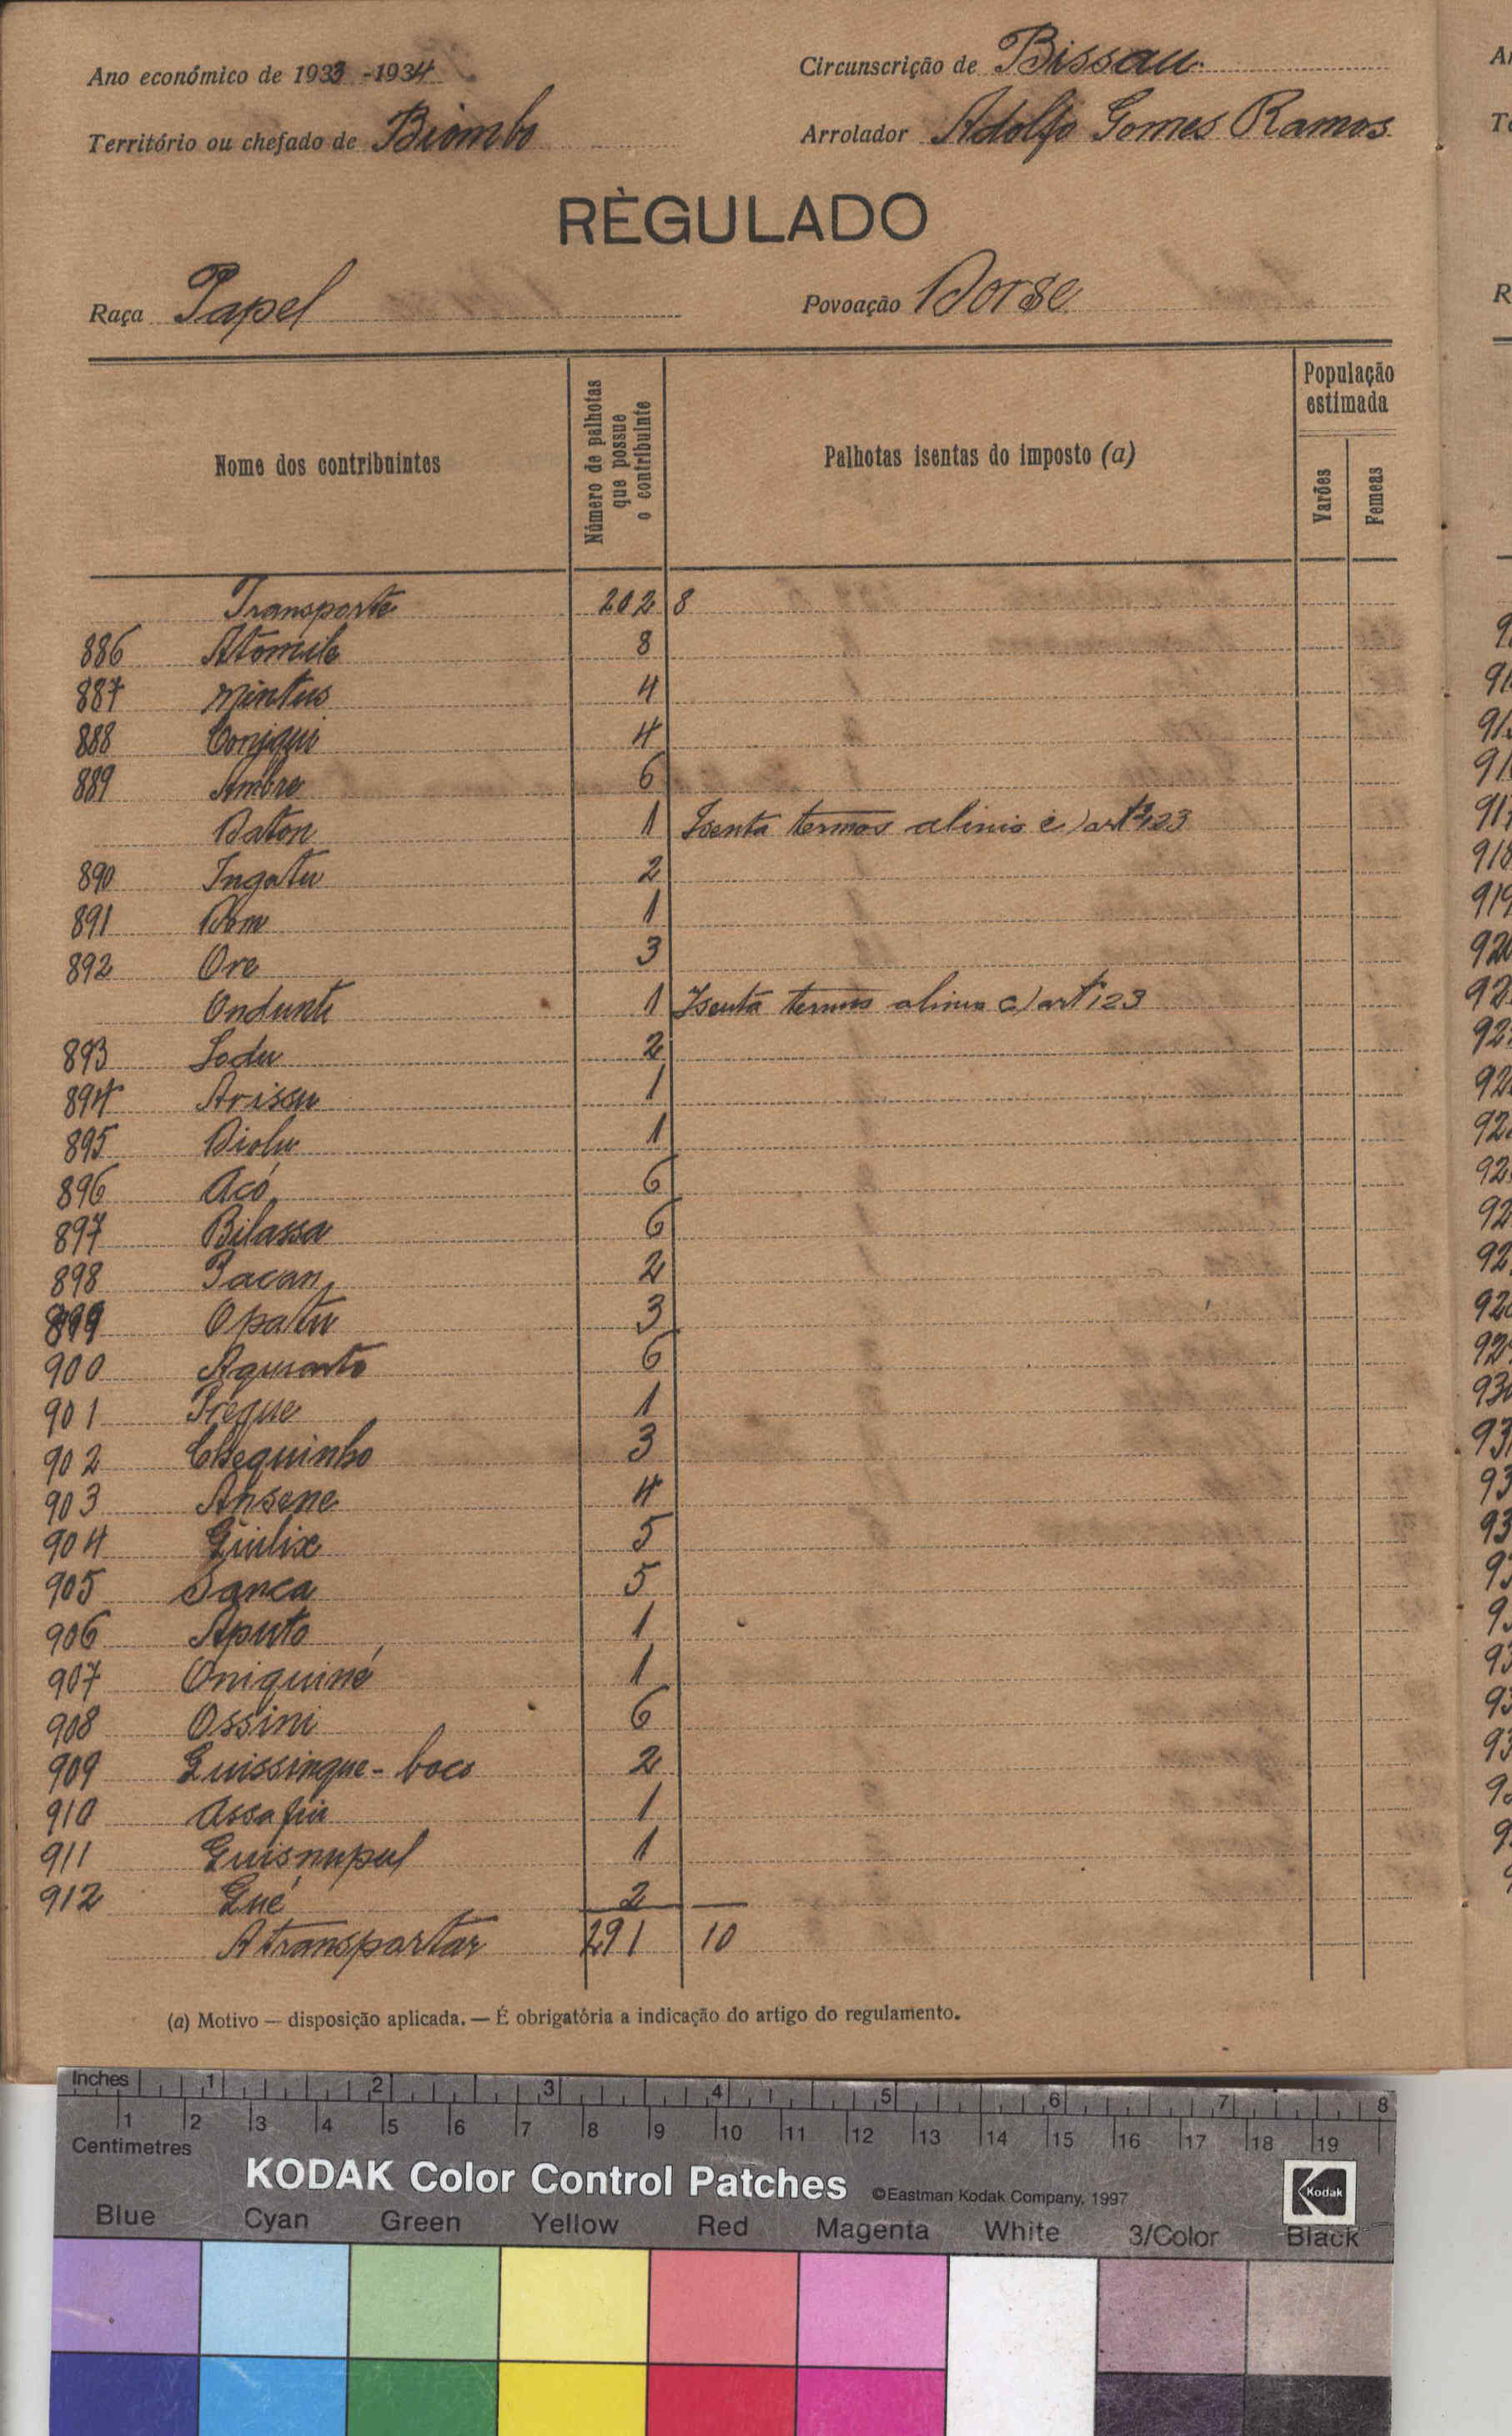 Ano económico de 1933-1934
Circunscrição de Bissau
Território ou chefado de Biombo
Arrolador Adolfo Gomes Ramos
RÈGULADO
Raça Papel
Povoação Dorse
Nome dos contribuintes
Número de palhotas que possue o contribuinte
Palhotas isentas do imposto (a)
População estimada
Varões
Femeas
Transporte 202 8
886 Atomile 8
887 Mintus 4
888 Conjqui 4
889 Ambre 6
Baton 1 Isenta termos alinia c) artº 123
890 Ingatu 2
891 Dom 1
892 Ore 3
Ondunti 1 Isenta termos alinia c) artº 123
893 Lodu 2
894 Arissu 1
895 Diolu 1
896 Acó 6
897 Bilassa 6
898 Pacan 2
899 Opatu 3
900 Aquinto 6
901 Préque 1
902 Chequinho 3
903 Ansene 4
904 Quilix 5
905 Sanca 5
906 Aputo 1
907 Oniquiné 1
908 Ossini 6
909 Quissinque-boco 2
910 Assafin 1
911 Quisnupul 1
912 Qué 2
A transportar 291 10
(a) Motivo — disposição aplicada. — É obrigatória a indicação do artigo do regulamento.
Inches 1 2 3 4 5 6 7 8
1 2 3 4 5 6 7 8 9 10 11 12 13 14 15 16 17 18 19
Centimetres
KODAK Color Control Patches ©Eastman Kodak Company, 1997 Kodak
Blue Cyan Green Yellow Red Magenta White 3/Color Black